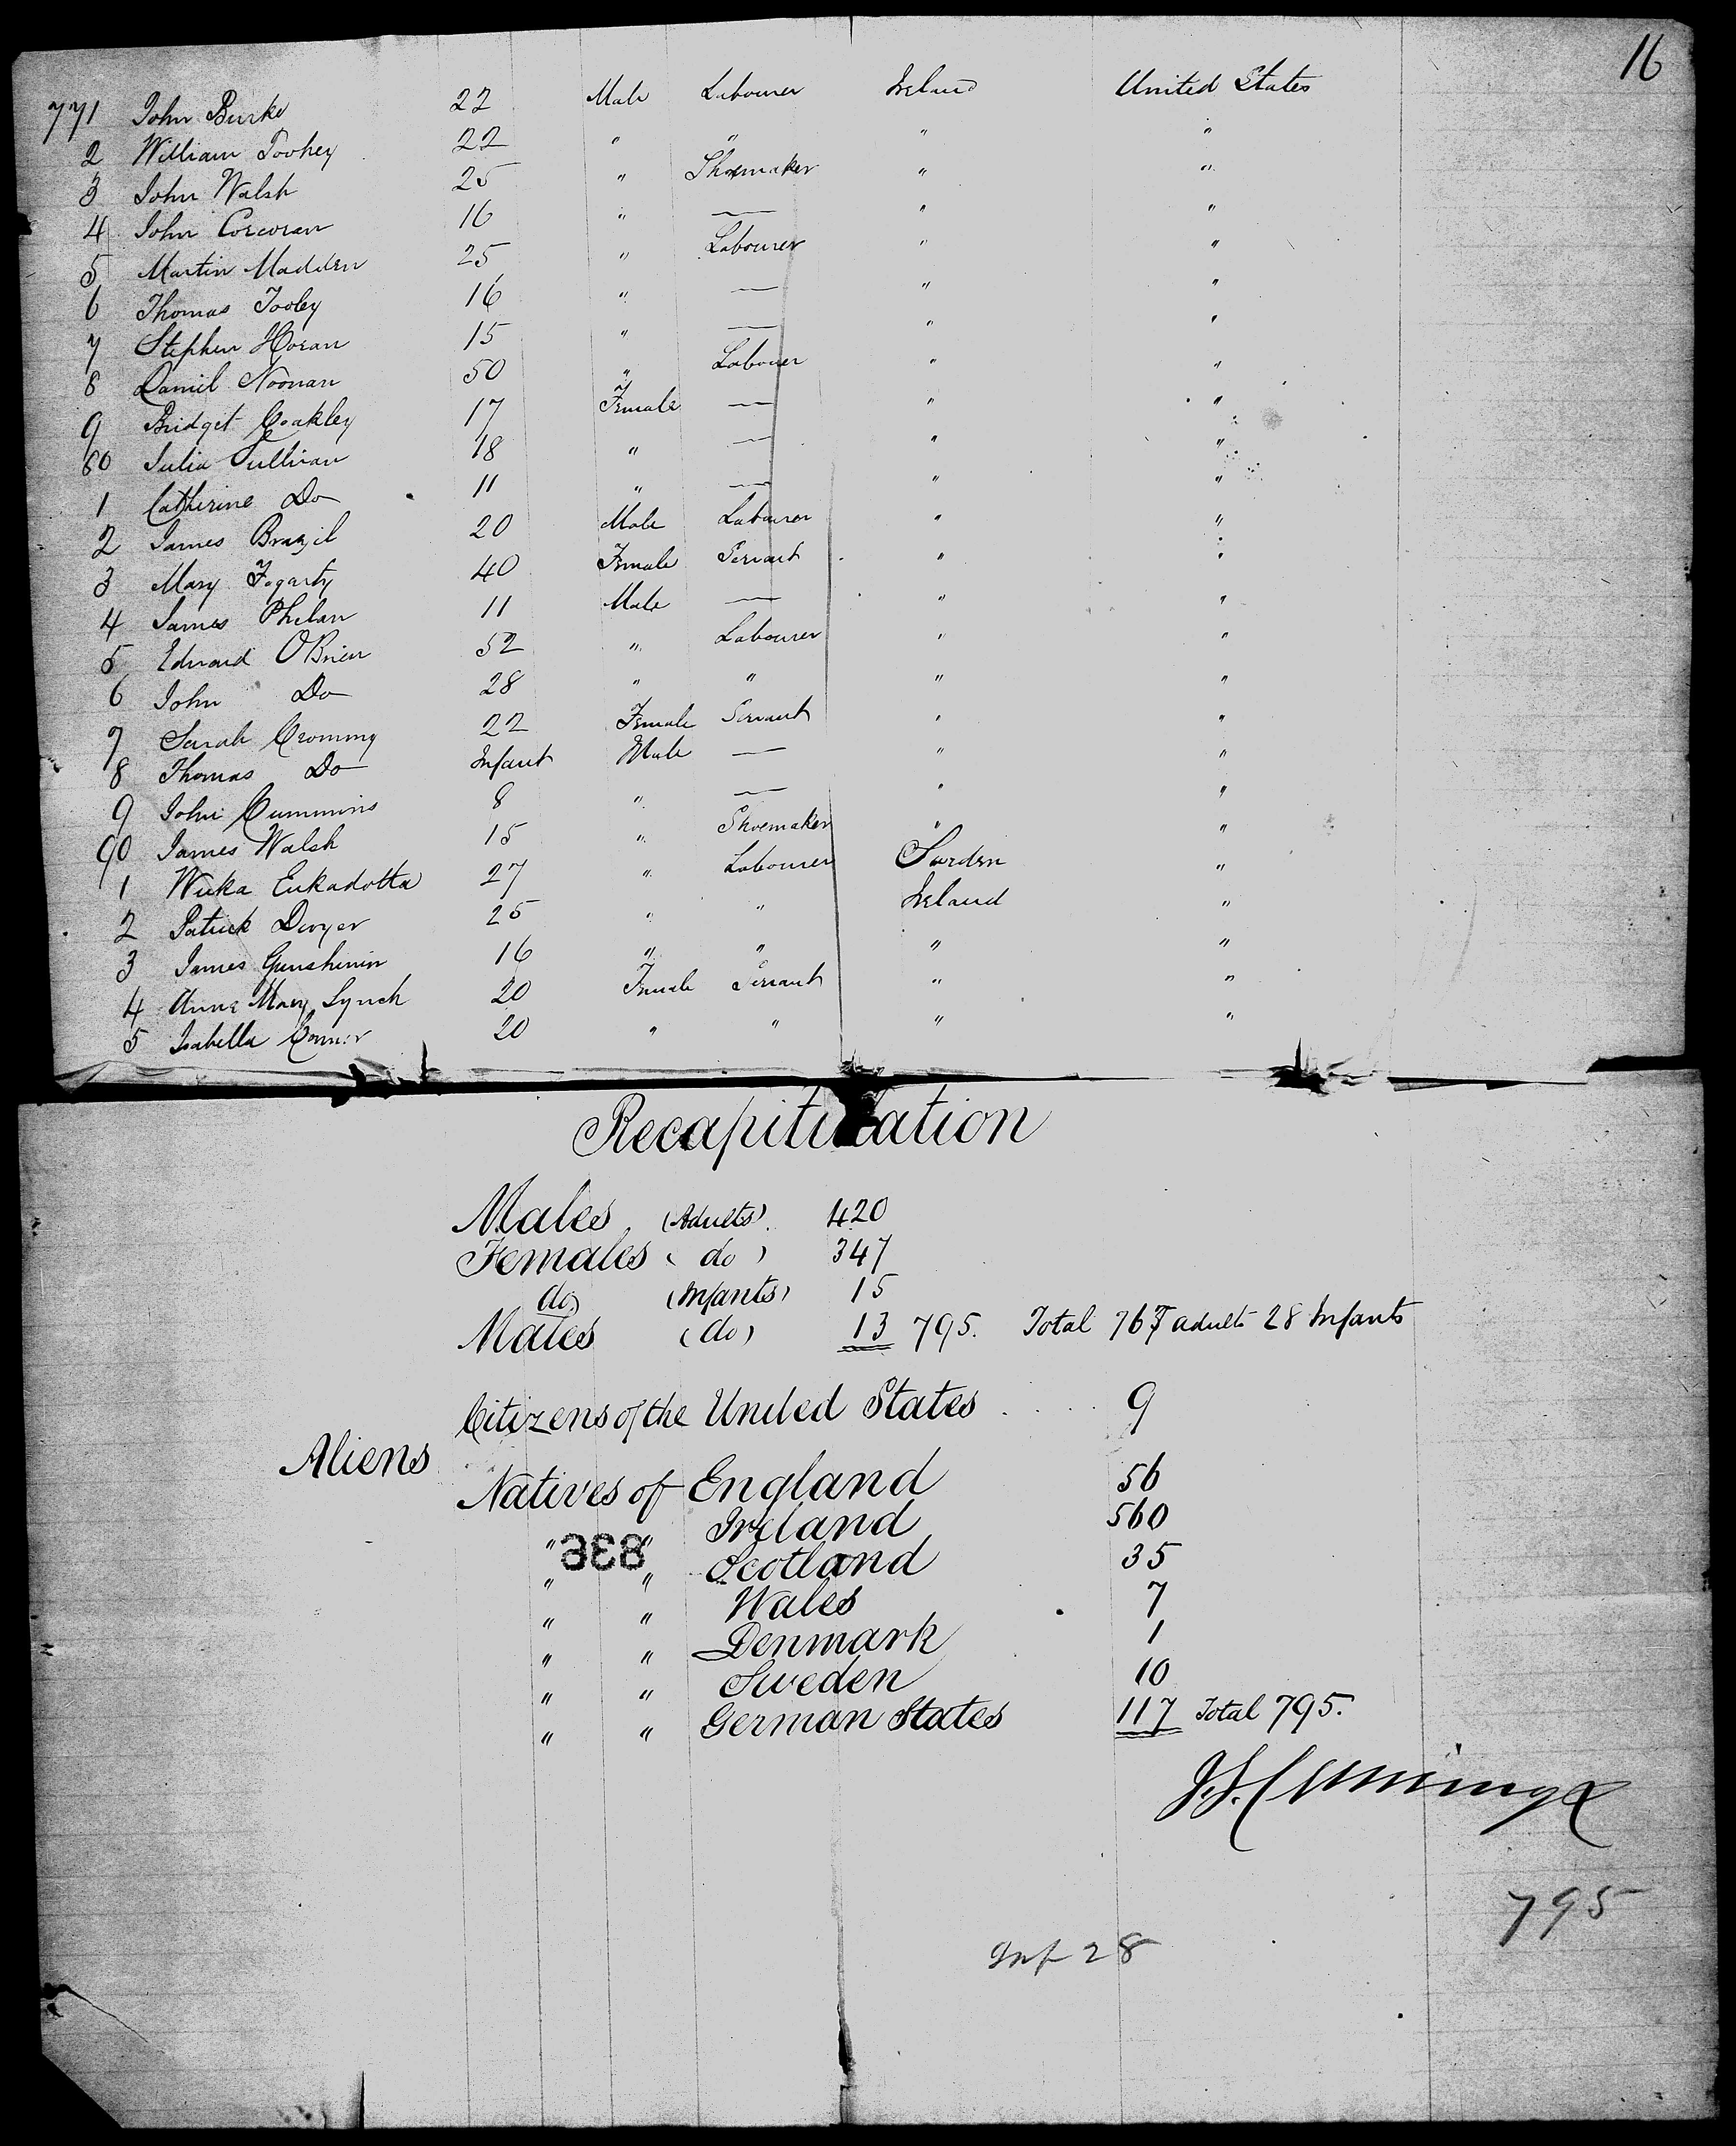 16
771 John Burke 22 Male Labourer Ireland United States
2 William Toohey 22 " " " "
3 John Walsh 25 " Shoemaker " "
4 John Corcoran 16 " — " "
5 Martin Madden 25 " Labourer " "
6 Thomas Tooley 16 " — " "
7 Stephen Horan 15 " — " "
8 Daniel Noonan 50 " Labourer " "
9 Bridget Coakley 17 Female — " "
80 Julia Sullivan 18 " — " "
1 Catherine Do 11 " — " "
2 James Brazil 20 Male Labourer " "
3 Mary Fogarty 40 Female Servant " "
4 James Phelan 11 Male — " "
5 Edward OBrien 52 " Labourer " "
6 John Do 28 " " " "
7 Sarah 22 Female Servant " "
8 Thomas Do Infant Male — " "
9 John Cummins 8 " — " "
90 James Walsh 15 " Shoemaker " "
1 27 " Labourer Sweden "
2 Patrick Dwyer 25 " " Ireland "
3 James 16 " " " "
4 Anne Mary Lynch 20 Female Servant " "
5 Isabella Connor 20 " " " "
Recapitulation
Males (Adults) 420
Females (do) 347
do (Infants) 15
Males (do) 13 795. Total 767 adults 28 Infants
Citizens of the United States .... 9
Aliens
Natives of England 56
" " Ireland 560
838
" " Scotland 35
" " Wales 7
" " Denmark 1
" " Sweden 10
" " German States 117 Total 795.
795
Inf 28